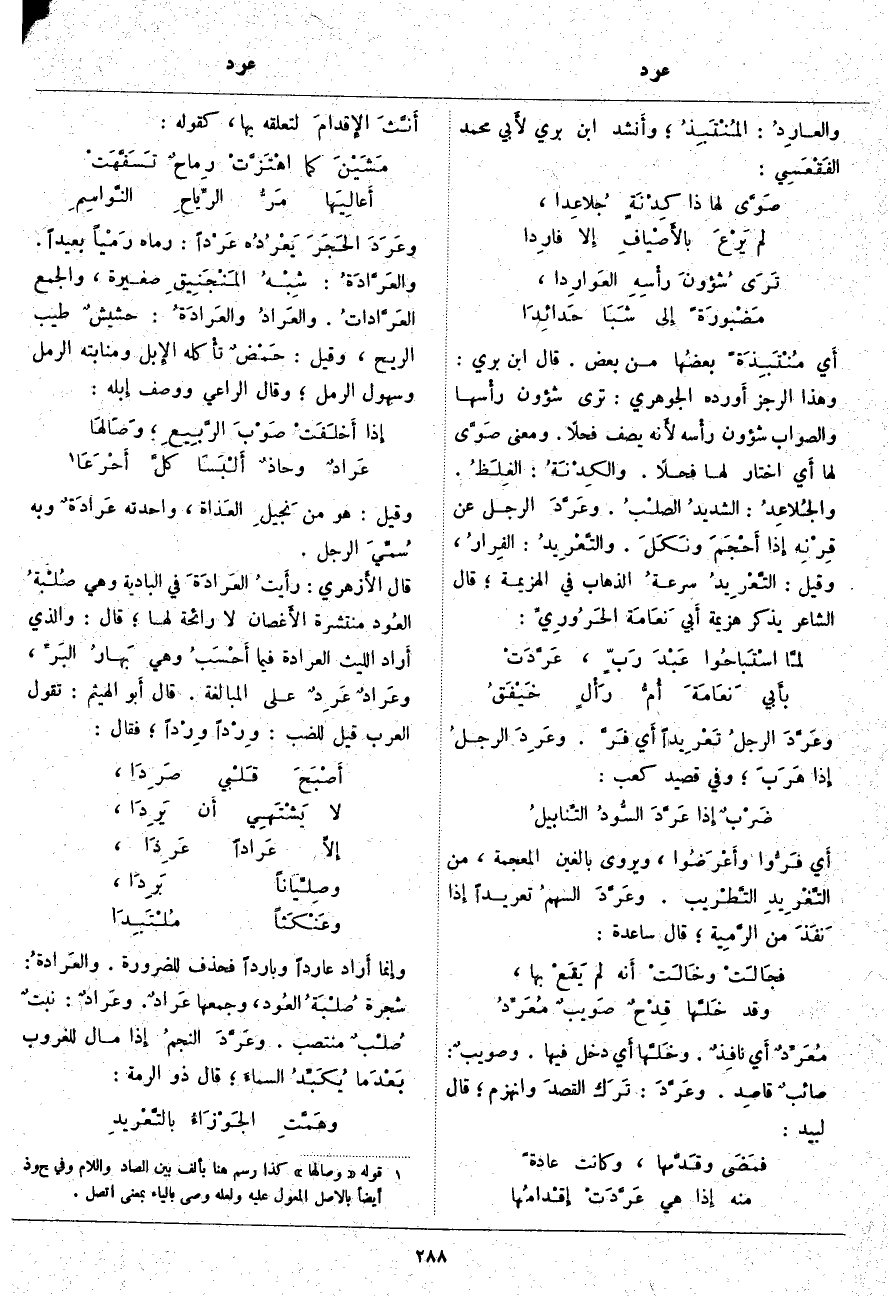 عرد
عرد
والعاردُ : المُنْتَبِذُ ؛ وأنشد ابن بري لأبي محمد
الفَقْعَسِي :
صَوَّى لها ذا كِدْنَةٍ جُلاعِدا ،
لم يَرْعَ بالأَصْيافِ إلا فارِدا
تَرَى شُؤونَ رأْسِهِ العَوارِدا ،
مَضْبُورَةً إلى شَبَا حَدائِدَا
أي مُنْتَبِذَةً بعضُها من بعض . قال ابن بري :
وهذا الرجز أورده الجوهري : ترى شؤون رأسها
والصواب شؤون رأسه لأنه يصف فحلًا . ومعنى صَوَّى
لها أي اختار لها فحلًا . والكِدْنَةُ : الغِلَظُ .
والجُلاعِدُ : الشديدُ الصلْبُ . وعَرَّدَ الرجل عن
قِرْنِهِ إذا أَحْجَمَ ونَكَلَ . والتَّعْرِيدُ : الفِرارُ ،
وقيل : التَّعْرِيدُ سرعةُ الذهاب في الهزيمة ؛ قال
الشاعر يذكر هزيمة أبي نَعامَة الحَرُورِيِّ :
لمَّا اسْتَباحُوا عَبْدَ رَبٍّ ، عَرَّدَتْ
بأَبي نَعامَةَ أُمُّ رَأْلٍ خَيْفَقُ
وعَرَّدَ الرجلُ تَعْرِيداً أي فَرَّ . وعَرِدَ الرجلُ
إذا هَرَبَ ؛ وفي قصيد كعب :
ضَرْبٌ إذا عَرَّدَ السُّودُ التَّنابيلُ
أي فَرُّوا وأَعْرَضُوا ، ويروى بالغين المعجمة ، من
التَّغْرِيدِ التَّطْرِيبِ . وعَرَّدَ السهمُ تعريداً إذا
نَفَذَ من الرَّمِية ؛ قال ساعدة :
فجَالَتْ وخَالَتْ أَنه لم يَقَعْ بها ،
وقد خَلَّها قِدْحٌ صَوِيبٌ مُعَرِّدُ
مُعَرِّدٌ أي نافِذٌ . وخَلَّها أي دخل فيها . وصويبٌ :
صائبٌ قاصِد . وعَرَّدَ : تَرَكَ القصدَ وانهزم ؛ قال
لبيد :
فمَضَى وقَدَّمَها ، وكانت عادةً
منه إذا هي عَرَّدَتْ إقْدامُها
أَنَّثَ الإقْدامَ لتعلقه بها ، كقوله :
مَشَيْنَ كما اهْتَزَّتْ رِماحٌ تَسَفَّهَتْ
أَعالِيَها مَرُّ الرِّياحِ النَّواسِمِ
وعَرَدَ الحَجَرَ يَعْرُدُه عَرْداً : رماه رَمْياً بعيداً .
والعَرَّادَةُ : شِبْهُ المَنْجَنِيقِ صغيرة ، والجمع
العَرَّاداتُ . والعَرادُ والعَرادَةُ : حشيشٌ طيب
الريح ، وقيل : حَمْضٌ تأكله الإبل ومنابته الرمل
وسهول الرمل ؛ وقال الراعي ووصف إبله :
إذا أَخلَفَتْ صَوْبَ الرَّبِيعِ ، وَصَالها
عَرادٌ وحاذٌ أَلْبَسَا كلَّ أَجْرَعَا١
وقيل : هو من نَجِيلِ العَذاة ، واحدته عَرادَةٌ وبه
سُمِّيَ الرجل .
قال الأَزهري : رأيتُ العَرادَةَ في البادية وهي صُلْبَةُ
العُود منتشرة الأَغصان لا رائحة لها ؛ قال : والذي
أراد الليث العرادة فيما أَحْسَبُ وهي بَهارُ البَرِّ ،
وعَرادٌ عَرِدٌ على المبالغة . قال أبو الهيثم : تقول
العرب قيل للضب : وِرْداً وِرْداً ؛ فقال :
أَصْبَحَ قَلْبي صَرِدَا ،
لا يَشْتَهِي أن يَرِدَا ،
إلاَّ عَراداً عَرِدَا ،
وصِلِّيَاناً بَرِدَا ،
وعَنْكَثاً مُلْتَبِدَا
وإنما أراد عارداً وبارداً فحذف للضرورة . والعَرادةُ :
شجرة صُلْبَةُ العُود ، وجمعها عَرادٌ . وعَرادٌ : نبتٌ
صُلْبٌ منتصب . وعَرَّدَ النجمُ إذا مال للغروب
بَعْدَما يُكَبِّدُ السماء ؛ قال ذو الرمة :
وهَمَّتِ الجَوْزاءُ بالتَّعْرِيدِ
١ قوله « وصالها » كذا رسم هنا بألف بين الصاد واللام وفي حوذ
أيضاً بالاصل المعول عليه ولعله وصى بالياء بمعنى اتصل .
٢٨٨